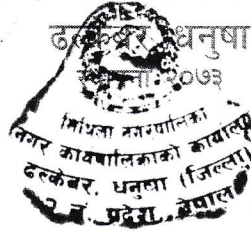 ढल्केबर, धनुषा
स्थापना २०७३
मिथिला नगरपालिका
नगर कार्यपालिकाको कार्यालय
ढल्केबर, धनुषा (जिल्ला)
२ नं. प्रदेश, नेपाल